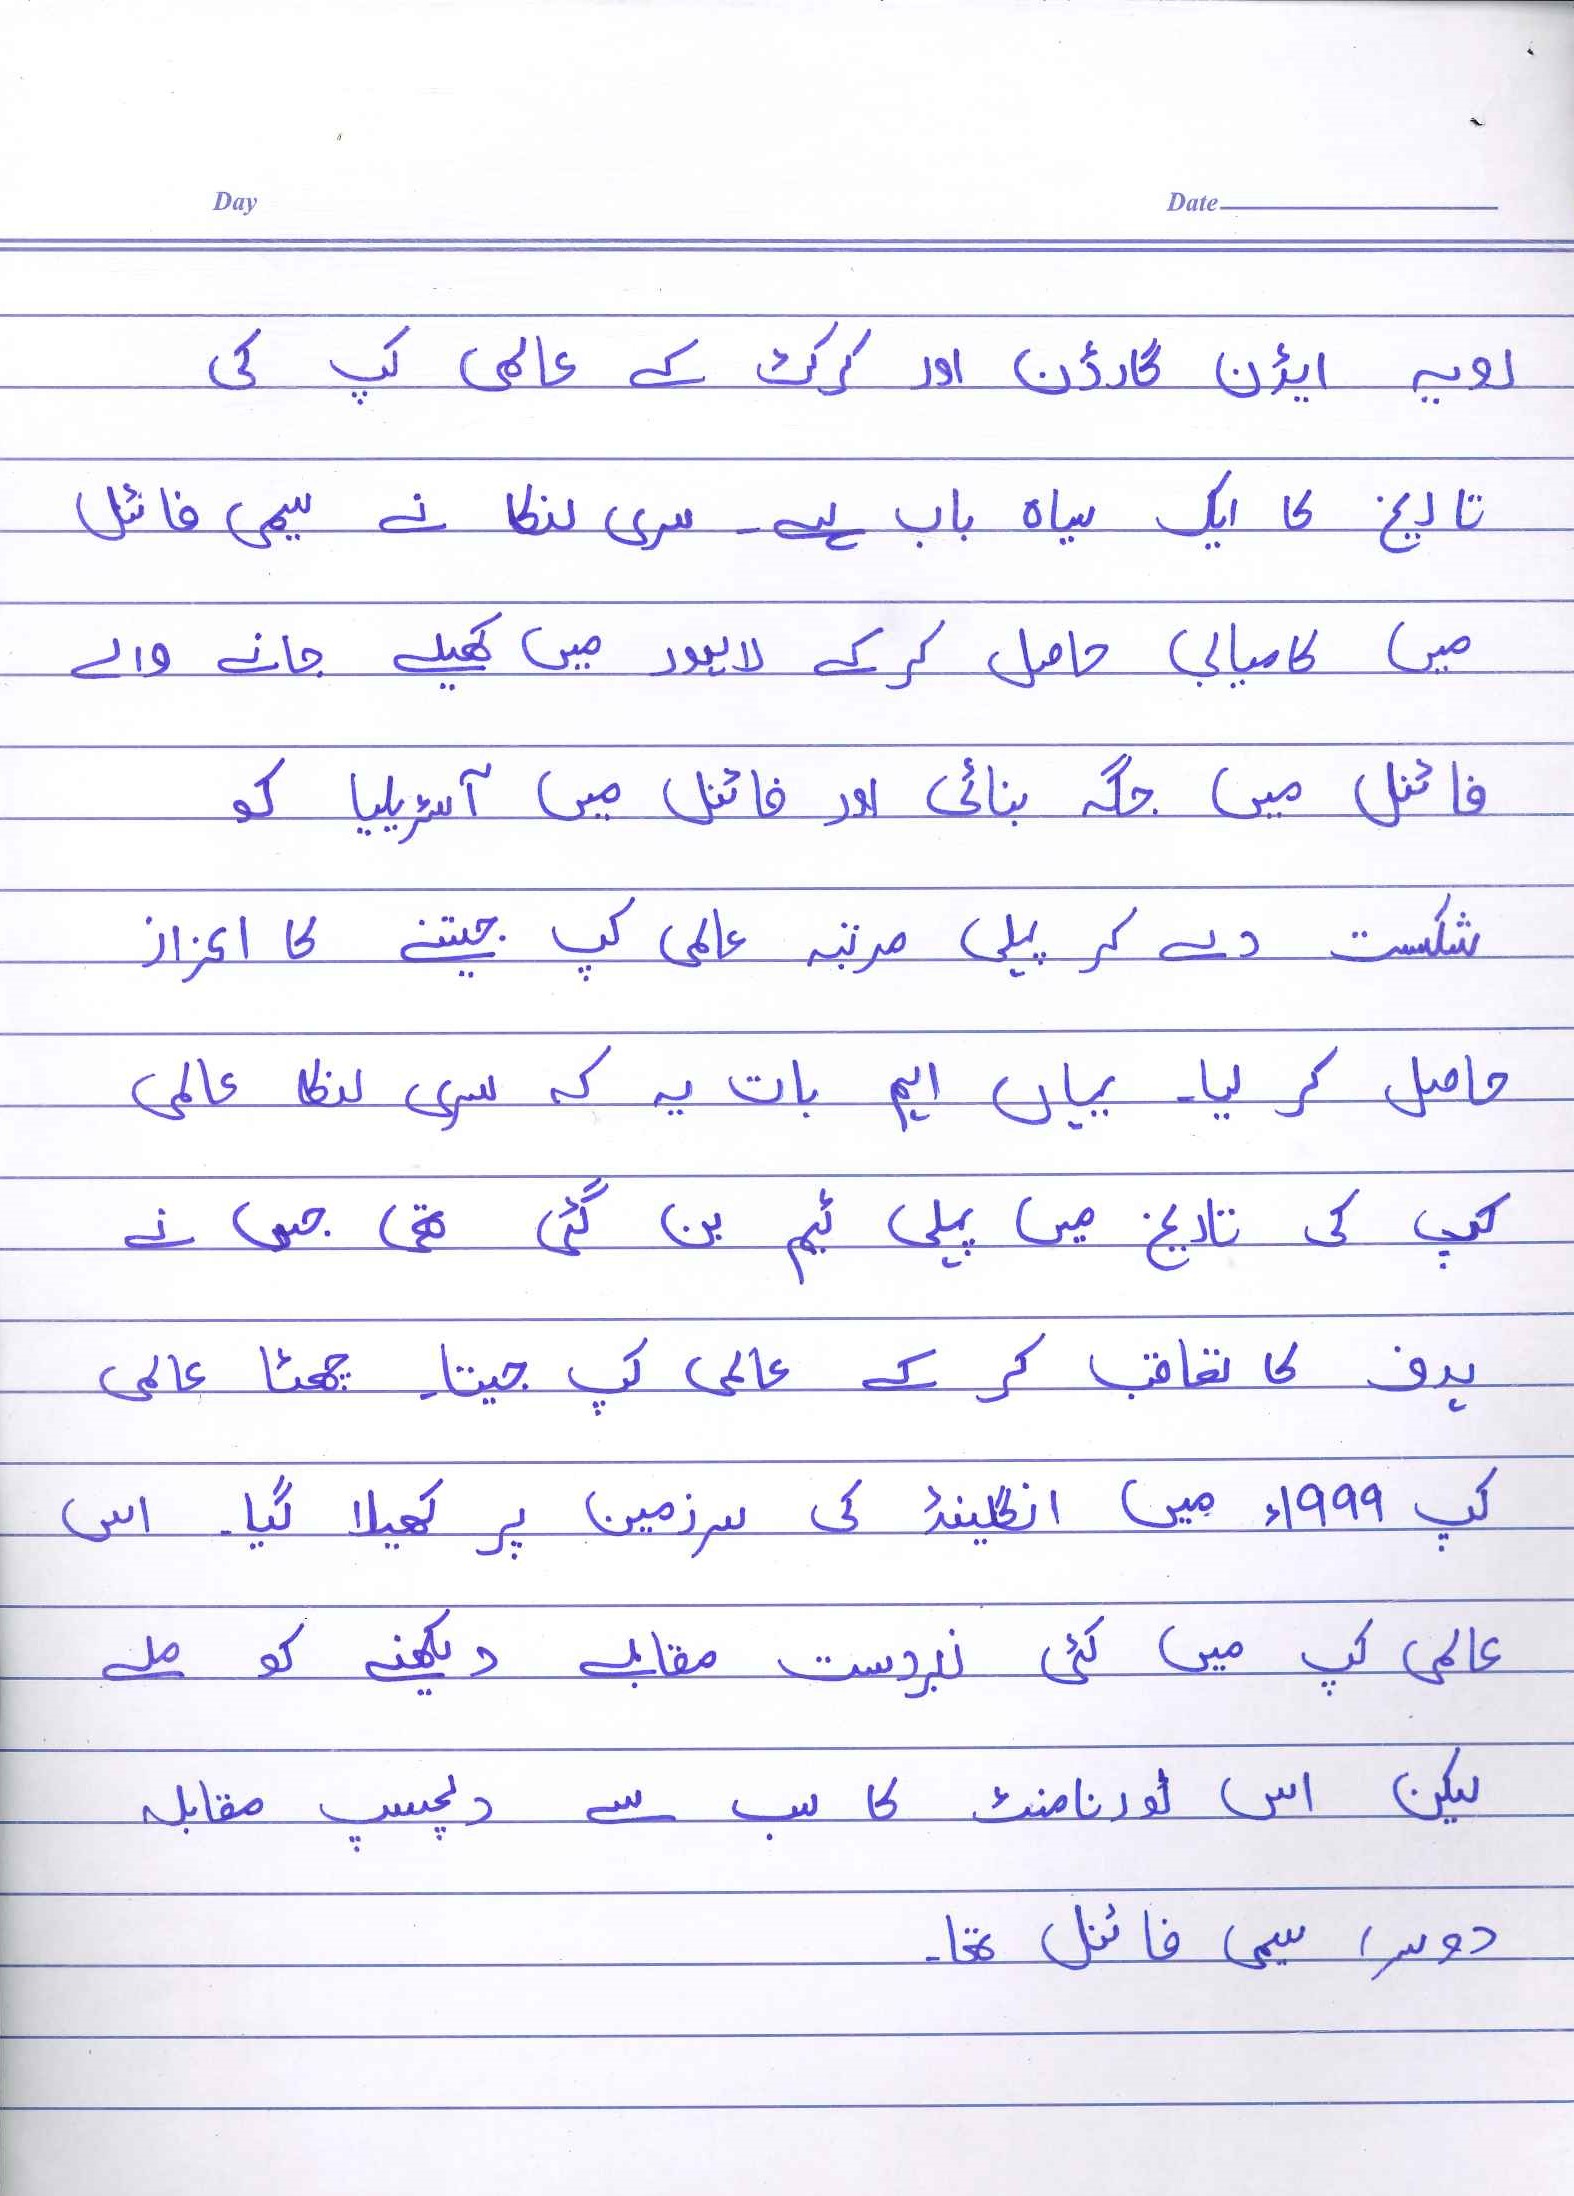 Day Date
رویہ ایڈن گارڈن اور کرکٹ کے عالمی کپ کی
تاریخ کا ایک سیاہ باب ہے۔ سری لنکا نے سیمی فائنل
میں کامیابی حاصل کرکے لاہور میں کھیلے جانے والے
فائنل میں جگہ بنائی اور فائنل میں آسٹریلیا کو
شکست دے کر پہلی مرتبہ عالمی کپ جیتنے کا اعزاز
حاصل کر لیا۔ یہاں اہم بات یہ کہ سری لنکا عالمی
کپ کی تاریخ میں پہلی ٹیم بن گئی تھی جس نے
ہدف کا تعاقب کر کے عالمی کپ جیتا۔ چھٹا عالمی
کپ ۱۹۹۹ء میں انگلینڈ کی سرزمین پر کھیلا گیا۔ اس
عالمی کپ میں کئی زبردست مقابلے دیکھنے کو ملے
لیکن اس ٹورنامنٹ کا سب سے دلچسپ مقابلہ
دوسرا سیمی فائنل تھا۔